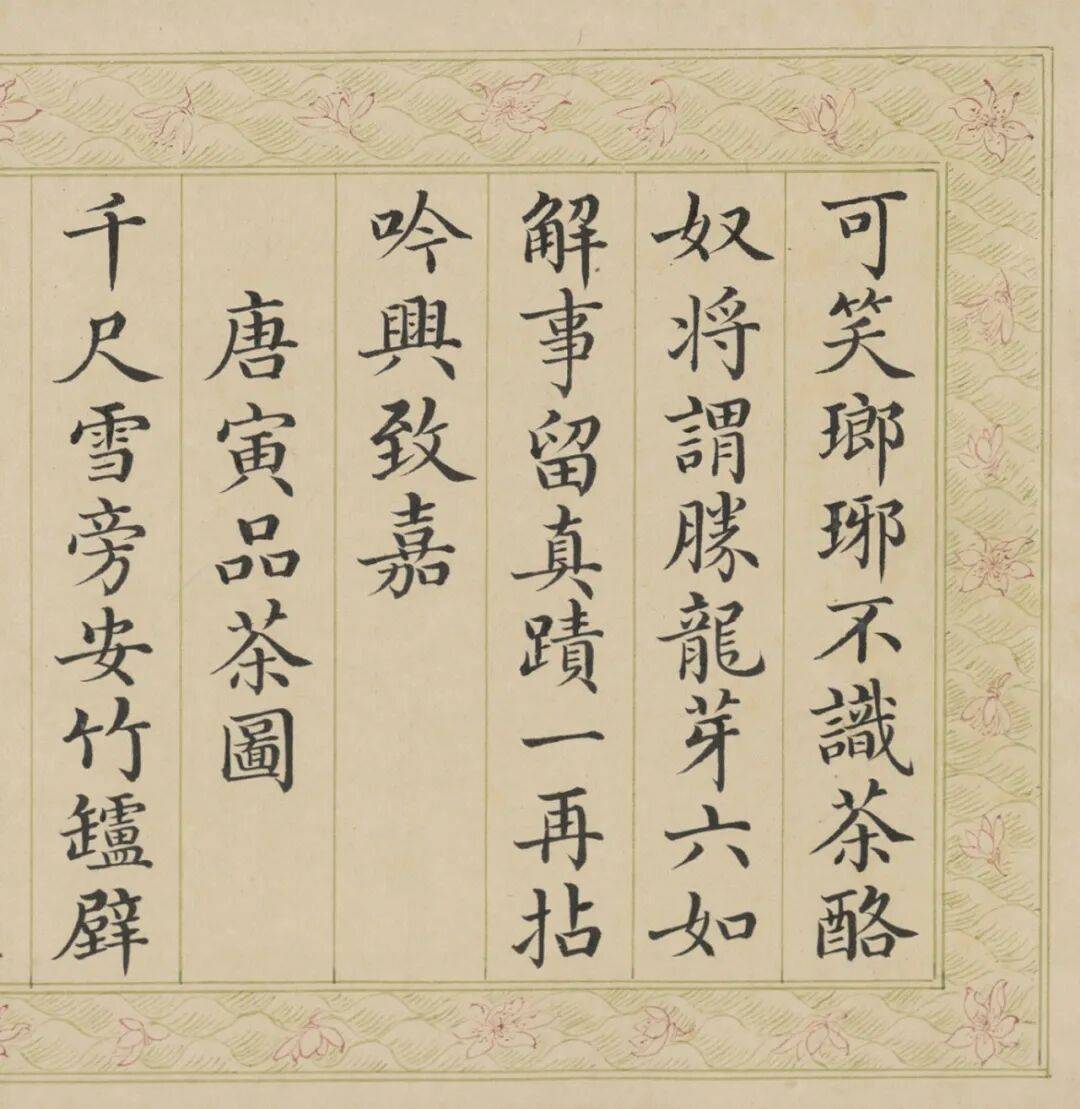 可笑瑯琊不識茶酪
奴将謂勝龍芽六如
解事留真蹟一再拈
吟興致嘉
唐寅品茶圖
千尺雪旁安竹罏壁